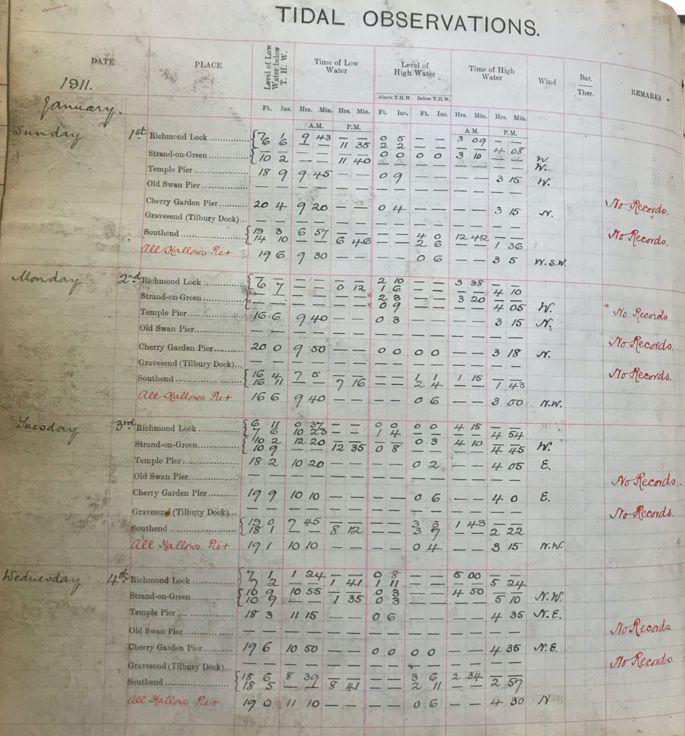 TIDAL OBSERVATIONS.
DATE PLACE Level of Low Water below T. H. W. Time of Low Water Level of High Water Time of High Water Wind Bar. Ther. REMARKS
Above T.H.W. Below T.H.W.
Ft. Ins. Hrs. Min. Hrs. Min. Ft. Ins. Ft. Ins. Hrs. Min. Hrs. Min.
1911.
January.
A.M. P.M. A.M. P.M.
Sunday 1st Richmond Lock { 7 1 9 43 — — 0 5 — — 3 09 — —
6 6 — — 11 35 2 2 — — — — 4 08 W.
Strand-on-Green { — — — — — — 0 0 0 0 3 10 — — W.
10 2 — — 11 40
Temple Pier 18 9 9 45 — — 0 9 — — — — 3 15 W.
Old Swan Pier — — — — — — — — — — — — — — No Records.
Cherry Garden Pier 20 4 9 20 — — 0 4 — — — — 3 15 N.
Gravesend (Tilbury Dock) — — — — — — — — — — — — — — No Records.
Southend { 19 3 6 57 — — — — 4 0 12 42 — —
14 10 — — 6 46 — — 2 6 — — 1 36
All Hallows Pier 19 6 9 30 — — — — 0 6 — — 3 5 W.S.W.
Monday 2nd Richmond Lock { — — — — — — 2 10 — — 3 38 — —
6 7 — — 0 12 1 6 — — — — 4 10
Strand-on-Green — — — — — — 2 3 — — 3 20 — —
— — — — — — 0 9 — — — — 4 05 W.
Temple Pier 16 6 9 40 — — 0 3 — — — — 3 15 N.
No Records
Old Swan Pier — — — — — — — — — — — — — — No Records.
Cherry Garden Pier 20 0 9 50 — — 0 0 0 0 — — 3 18 N.
Gravesend (Tilbury Dock) — — — — — — — — — — — — — — No Records.
Southend { 16 4 7 5 — — — — 1 1 1 15 — —
16 11 — — 7 16 — — 2 4 — — 1 43
All Hallows Pier 16 6 9 40 — — — — 0 6 — — 3 00 N.W.
Tuesday 3rd Richmond Lock { 6 11 0 37 — — 0 0 0 0 4 15 — —
7 6 10 23 — — 1 4 — — — — 4 54
Strand-on-Green { 10 2 12 20 — — — — 0 3 4 10 — —
10 9 — — 12 35 0 8 — — — — 4 45 W.
Temple Pier 18 2 10 20 — — — — 0 2 — — 4 05 E.
Old Swan Pier — — — — — — — — — — — — — — No Records.
Cherry Garden Pier 19 9 10 10 — — — — 0 6 — — 4 0 E.
Gravesend (Tilbury Dock) — — — — — — — — — — — — — — No Records.
Southend { 19 0 7 45 — — — — 3 3 1 43 — —
18 1 — — 8 12 — — 3 7 — — 2 22
All Hallows Pier 19 1 10 10 — — — — 0 4 — — 3 15 N.W.
Wednesday 4th Richmond Lock { 7 1 1 24 — — 0 8 — — 5 00 — —
7 2 — — 1 41 1 11 — — — — 5 24
Strand-on-Green { 10 9 10 55 — — 0 3 — — 4 50 — —
10 9 — — 1 35 0 3 — — — — 5 10 N.W.
Temple Pier 18 3 11 15 — — 0 6 — — — — 4 35 N.E.
Old Swan Pier — — — — — — — — — — — — — — No Records.
Cherry Garden Pier 19 6 10 50 — — 0 0 0 0 — — 4 35 N.E.
Gravesend (Tilbury Dock) — — — — — — — — — — — — — — No Records.
Southend { 18 6 8 39 — — — — 3 6 2 34 — —
18 5 — — 8 41 — — 2 11 — — 2 57
All Hallows Pier 19 0 11 10 — — — — 0 6 — — 4 30 N